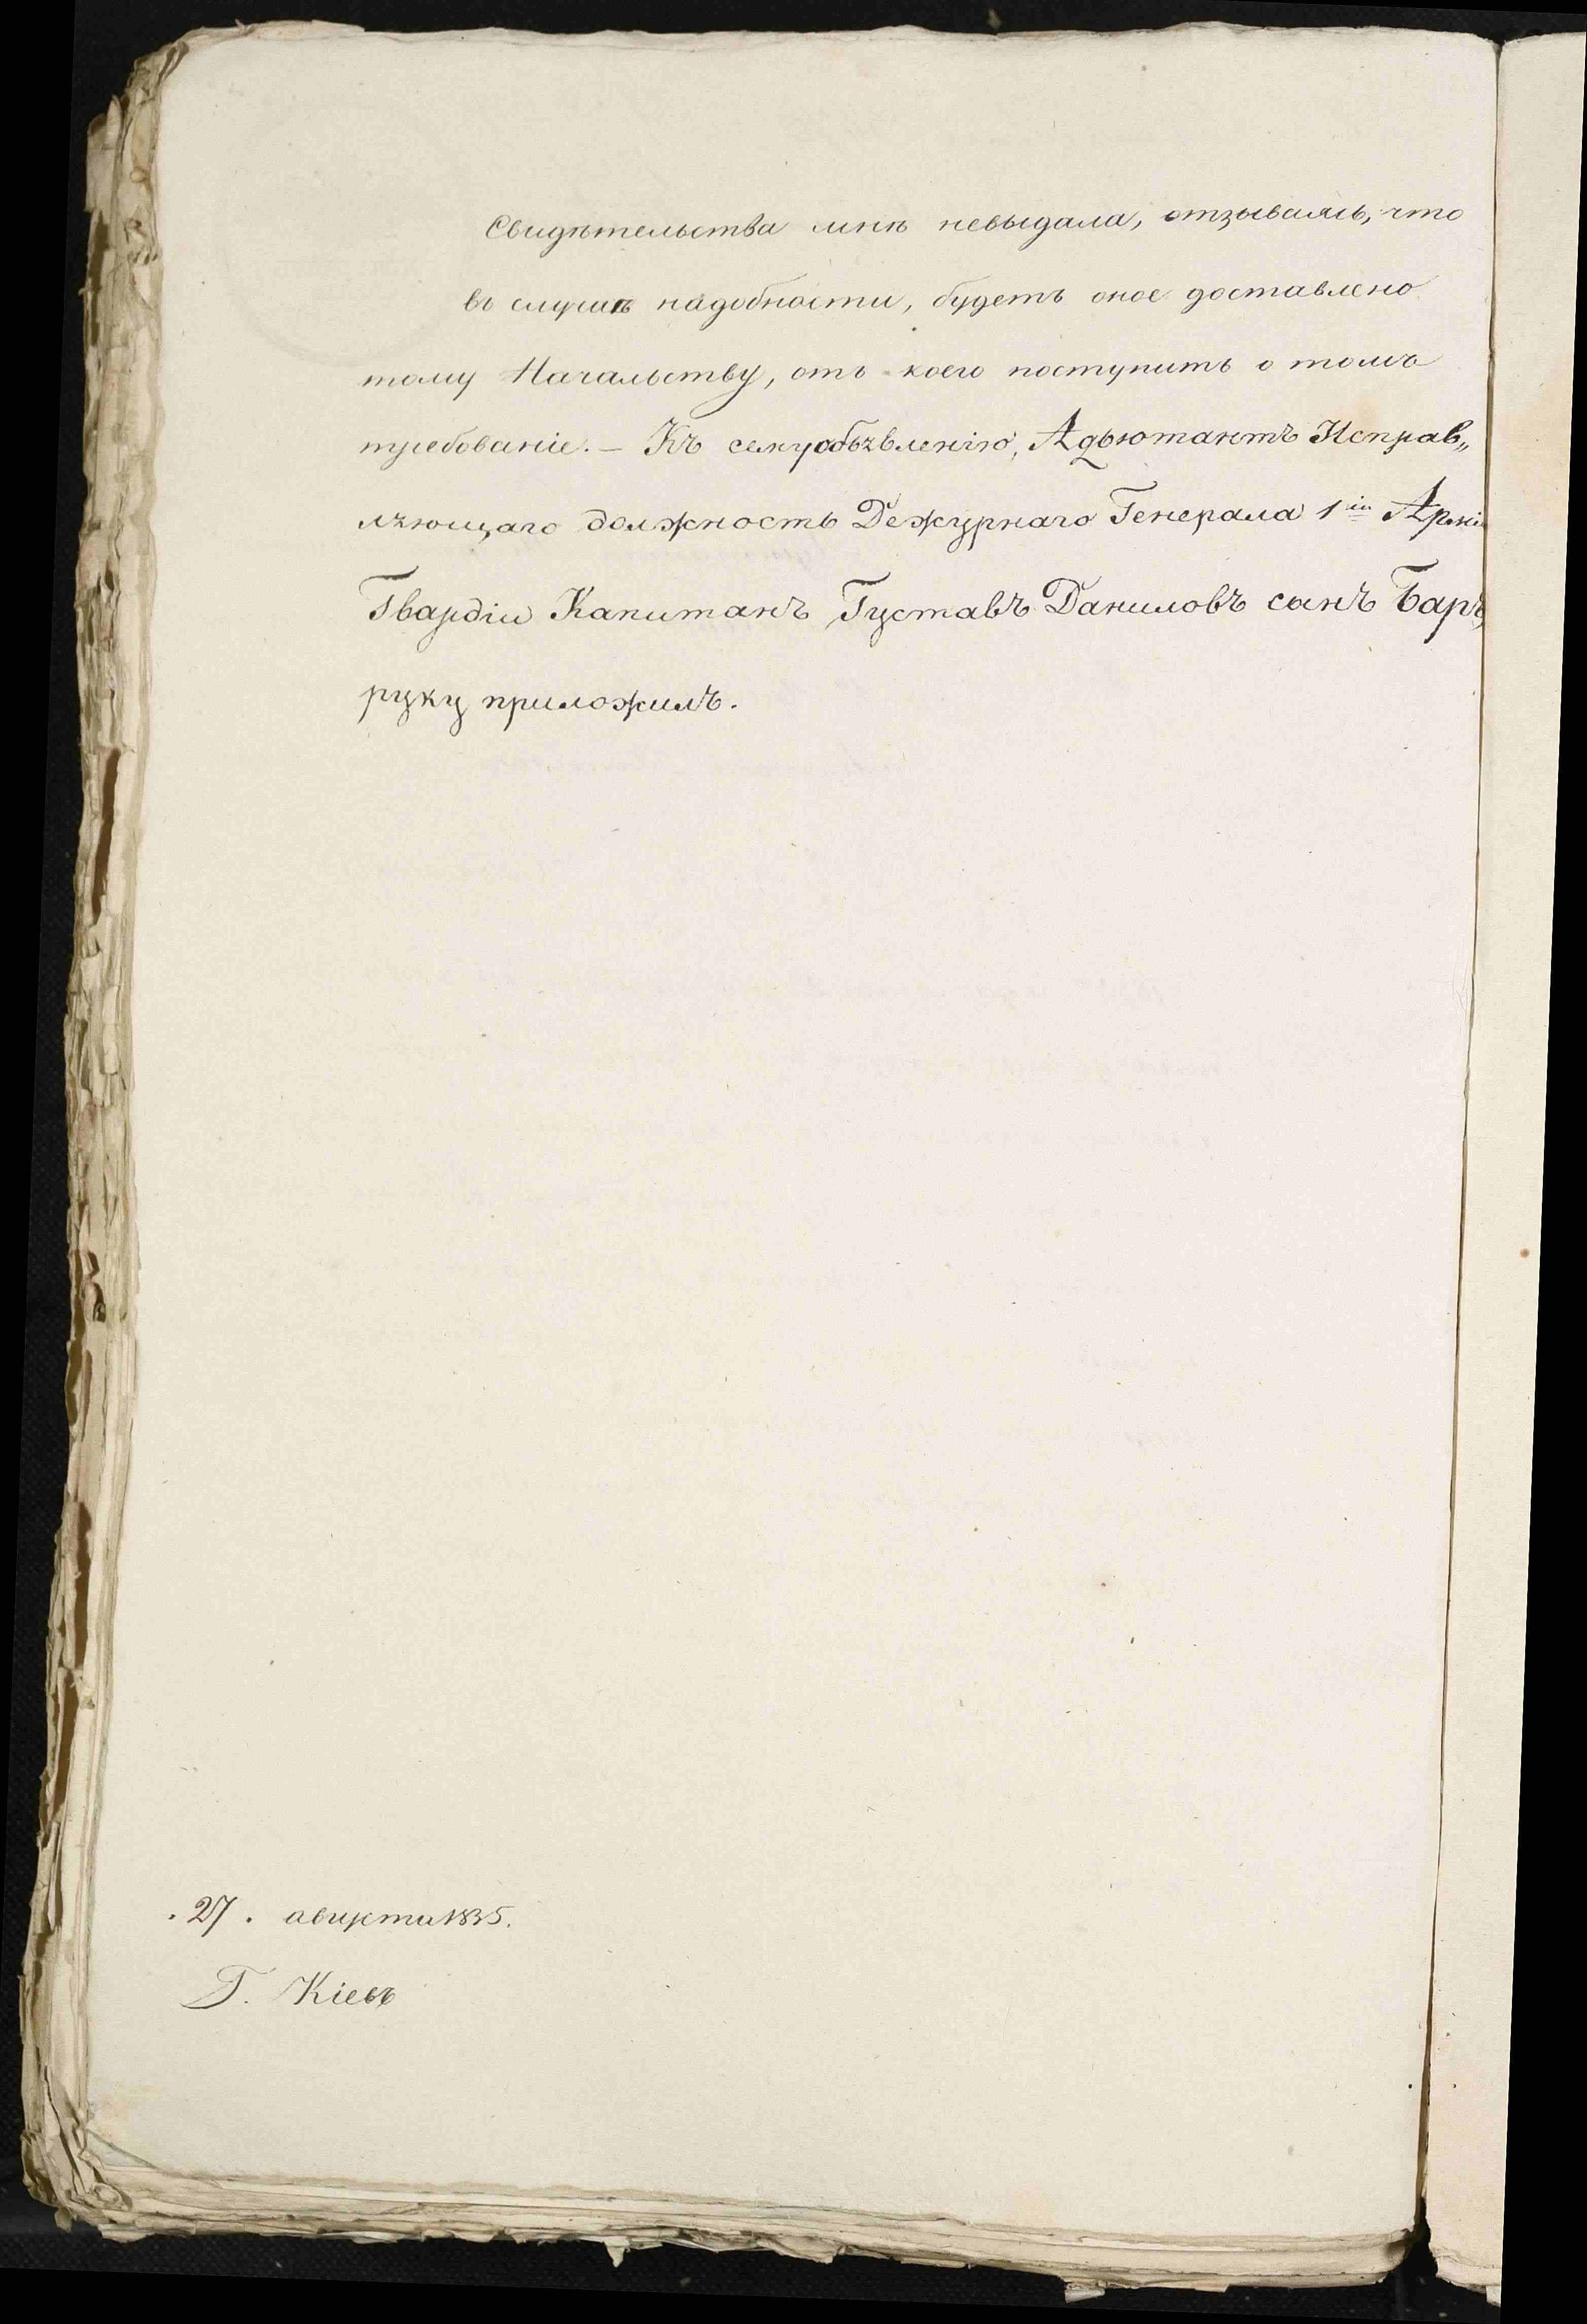 Свидѣтельства мнѣ невыдала, отзываясь, что
въ случаѣ надобности, будетъ оное доставлено
тому Начальству, отъ коего поступитъ о томъ
требованіе. — Къ сему объявленію, Адьютантъ Исправ„
ляющаго должность Дежурнаго Генерала 1й Арміи
Гвардіи Капитанъ Густавъ Даниловъ сынъ
руку приложилъ.
. 27 . августа 1835.
Г. Кіевъ